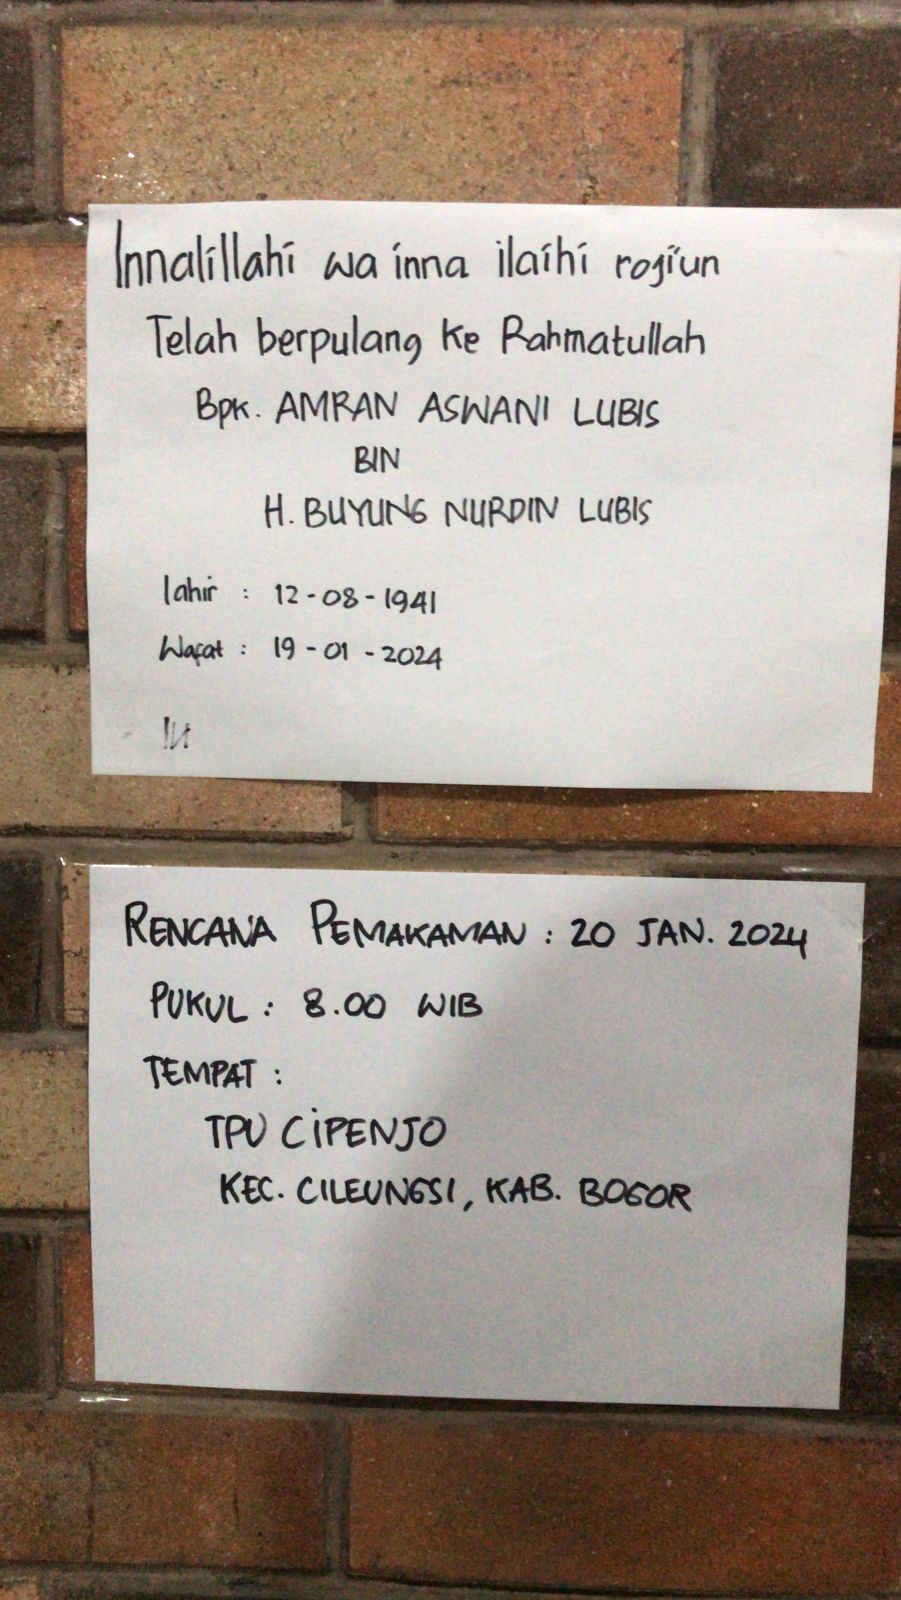 Innalillahi wa inna ilaihi roji'un
Telah berpulang ke Rahmatullah
Bpk. AMRAN ASWANI LUBIS
BIN
H. BUYUNG NURDIN LUBIS
lahir : 12-08-1941
Wafat : 19-01-2024
RENCANA PEMAKAMAN : 20 JAN. 2024
PUKUL : 8.00 WIB
TEMPAT :
TPU CIPENJO
KEC. CILEUNGSI, KAB. BOGOR